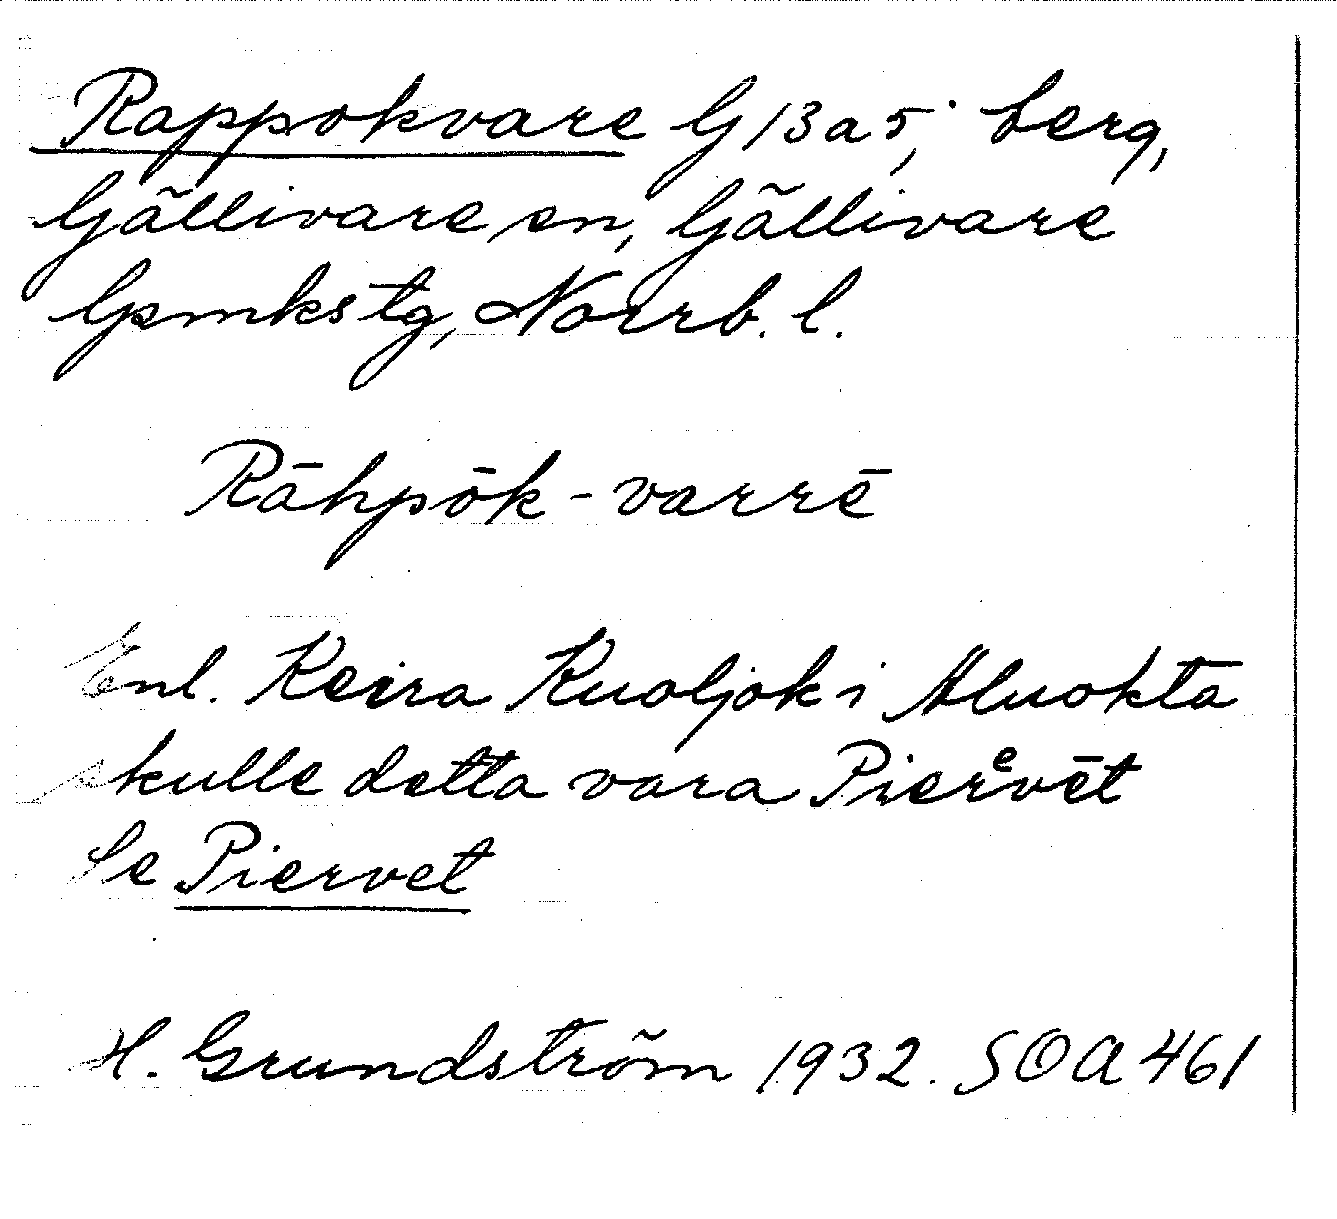 Rappokvare G 13 a 5; berg,
Gällivare sn, Gällivare
Gemkstg, Norrb. l.
Rāhpōk-varrē
Enl. Keira Kuoljok i Aluokta
skulle detta vara Pierᵉvēt
Se Piervet
H. Grundström 1932. SOA 461